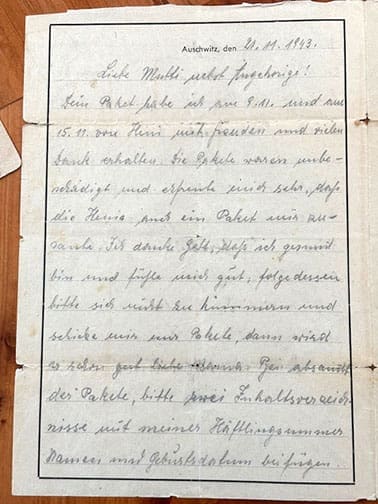 Auschwitz, den 21. 11. 1943.
Liebe Mutti nebst Angehörige!
Dein Paket habe ich am 9.11. und am
15.11. von Heni mit freuden und vielen
Dank erhalten. Die Pakete waren unbe-
schädigt und erfreute mich sehr, daß
die Henia auch ein Paket mir zu-
sante. Ich danke Gott, daß ich gesund
bin und fühle mich gut, folgedessen
bitte sich nicht zu kümmern und
schicke mir nur Pakete, dann wird
es schon gut Liebe Mama. Bei absandt
der Pakete, bitte zwei Inhaltsverzeich-
nisse mit meiner Häftlingsnummer
Namen und Geburtsdatum beifügen.